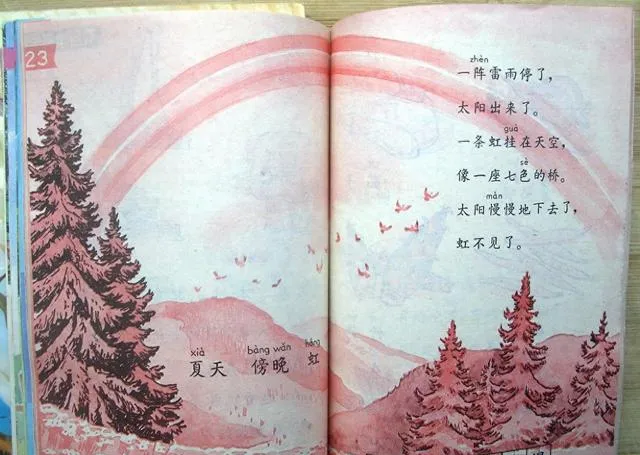 23
xià bàng wǎn hóng
夏天 傍晚 虹
zhèn
一阵雷雨停了，
太阳出来了。
guà
一条虹挂在天空，
sè
像一座七色的桥。
màn
太阳慢慢地下去了，
虹不见了。